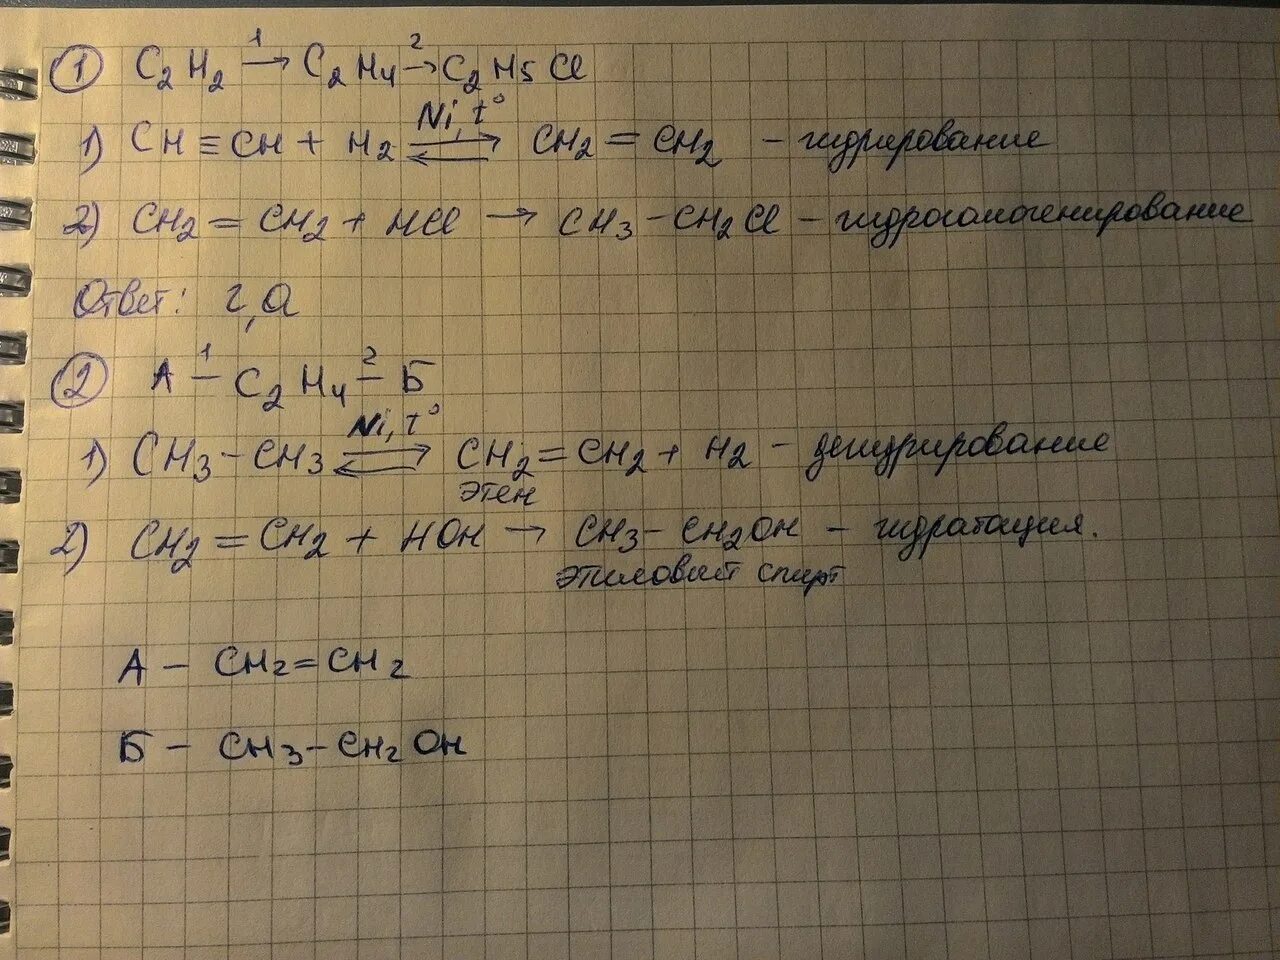 ① C₂H₂ —1→ C₂H₄ —2→ C₂H₅Cl
1) CH≡CH + H₂ ⇌ (Ni, t°) CH₂=CH₂ – гидрирование
2) CH₂=CH₂ + HCl → CH₃–CH₂Cl – гидрогалогенирование
Ответ: г, а
② А —1— C₂H₄ —2— Б
1) CH₃–CH₃ ⇌ (Ni, t°) CH₂=CH₂ + H₂ – дегидрирование
этен
2) CH₂=CH₂ + HOH → CH₃–CH₂OH – гидратация.
этиловый спирт
А – CH₂=CH₂
Б – CH₃–CH₂OH